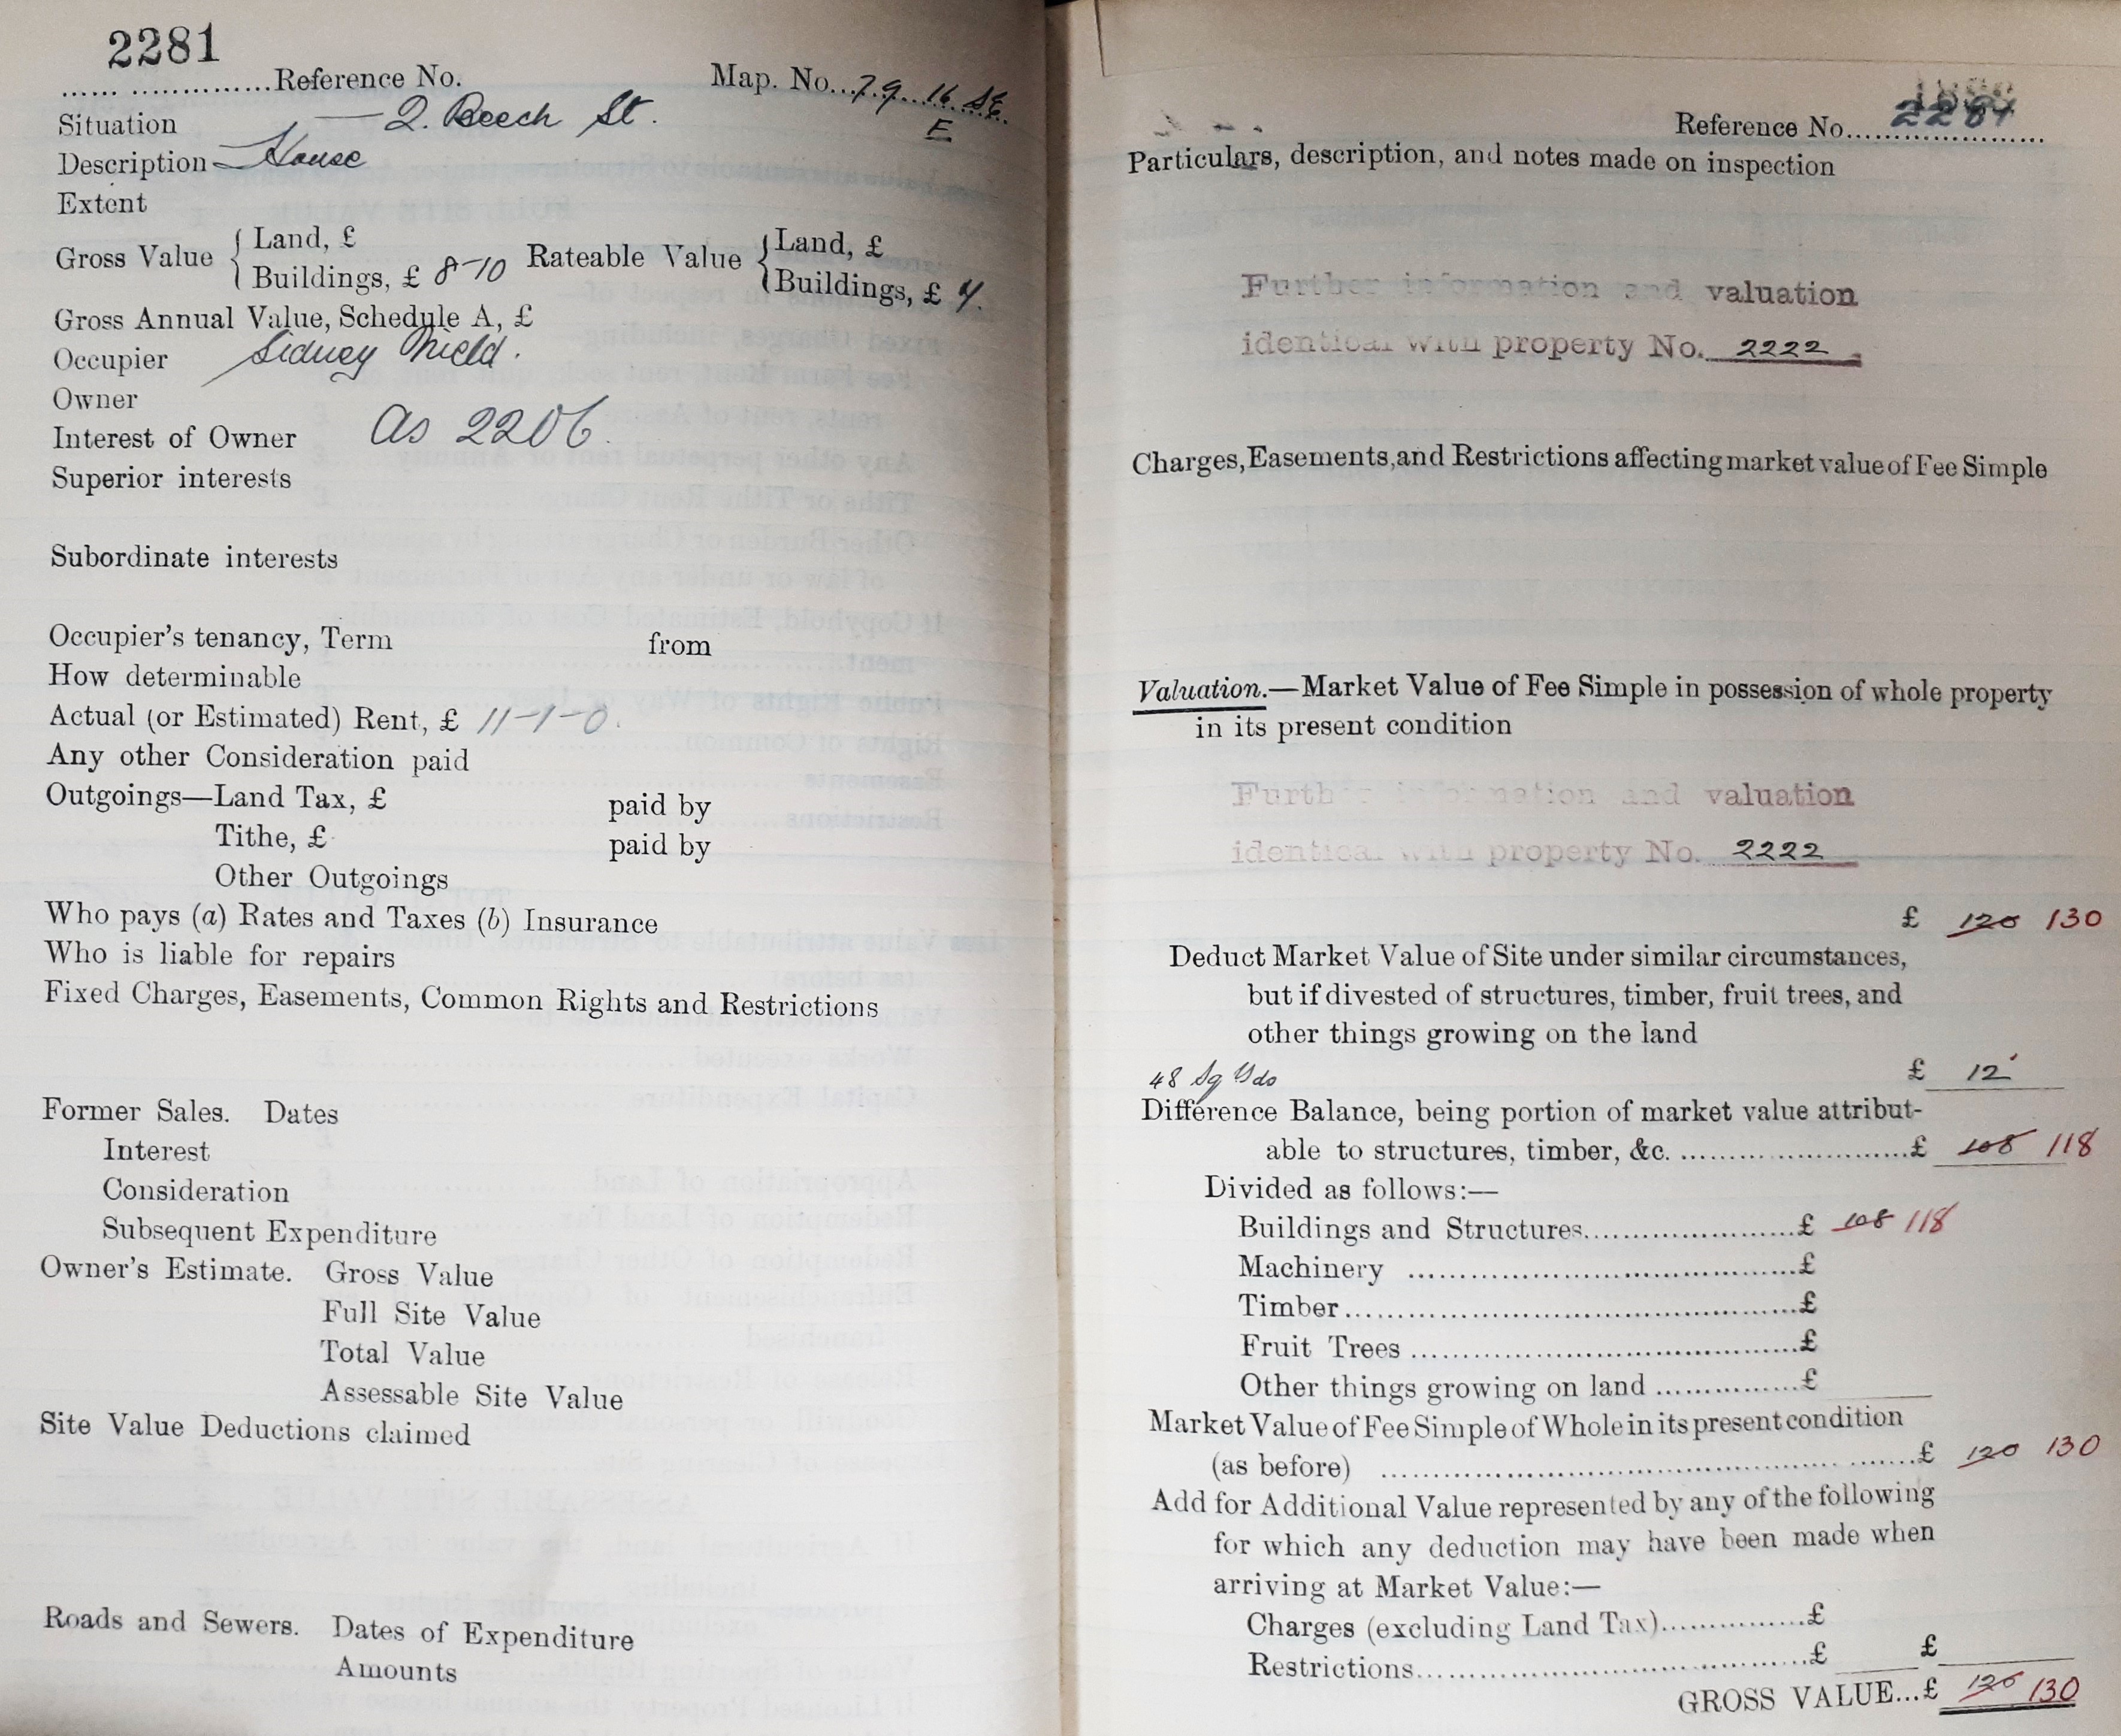 2281
...... ..............Reference No.
Map. No...79..16.SE.
E
Situation — 2. Beech St.
Description — House
Extent
Gross Value { Land, £
Buildings, £ 8-10
Rateable Value { Land, £
Buildings, £
Gross Annual Value, Schedule A, £
Occupier Sidney Nield.
Owner
Interest of Owner as 2206.
Superior interests
Subordinate interests
Occupier's tenancy, Term from
How determinable
Actual (or Estimated) Rent, £ 11-1-0.
Any other Consideration paid
Outgoings—Land Tax, £ paid by
Tithe, £ paid by
Other Outgoings
Who pays (a) Rates and Taxes (b) Insurance
Who is liable for repairs
Fixed Charges, Easements, Common Rights and Restrictions
Former Sales. Dates
Interest
Consideration
Subsequent Expenditure
Owner's Estimate. Gross Value
Full Site Value
Total Value
Assessable Site Value
Site Value Deductions claimed
Roads and Sewers. Dates of Expenditure
Amounts
Reference No. 2281
Particulars, description, and notes made on inspection
Further information and valuation
identical with property No. 2222
Charges, Easements, and Restrictions affecting market value of Fee Simple
Valuation.—Market Value of Fee Simple in possession of whole property
in its present condition
Further information and valuation
identical with property No. 2222
£ 120 130
Deduct Market Value of Site under similar circumstances,
but if divested of structures, timber, fruit trees, and
other things growing on the land
48 Sq Yds £ 12
Difference Balance, being portion of market value attribut-
able to structures, timber, &c. ..........................£ 108 118
Divided as follows:—
Buildings and Structures.......................£ 108 118
Machinery .........................................£
Timber...............................................£
Fruit Trees .........................................£
Other things growing on land ...............£
Market Value of Fee Simple of Whole in its present condition
(as before) ...........................................................£ 120 130
Add for Additional Value represented by any of the following
for which any deduction may have been made when
arriving at Market Value:—
Charges (excluding Land Tax)...............£
Restrictions..........................................£ £
GROSS VALUE...£ 120 130